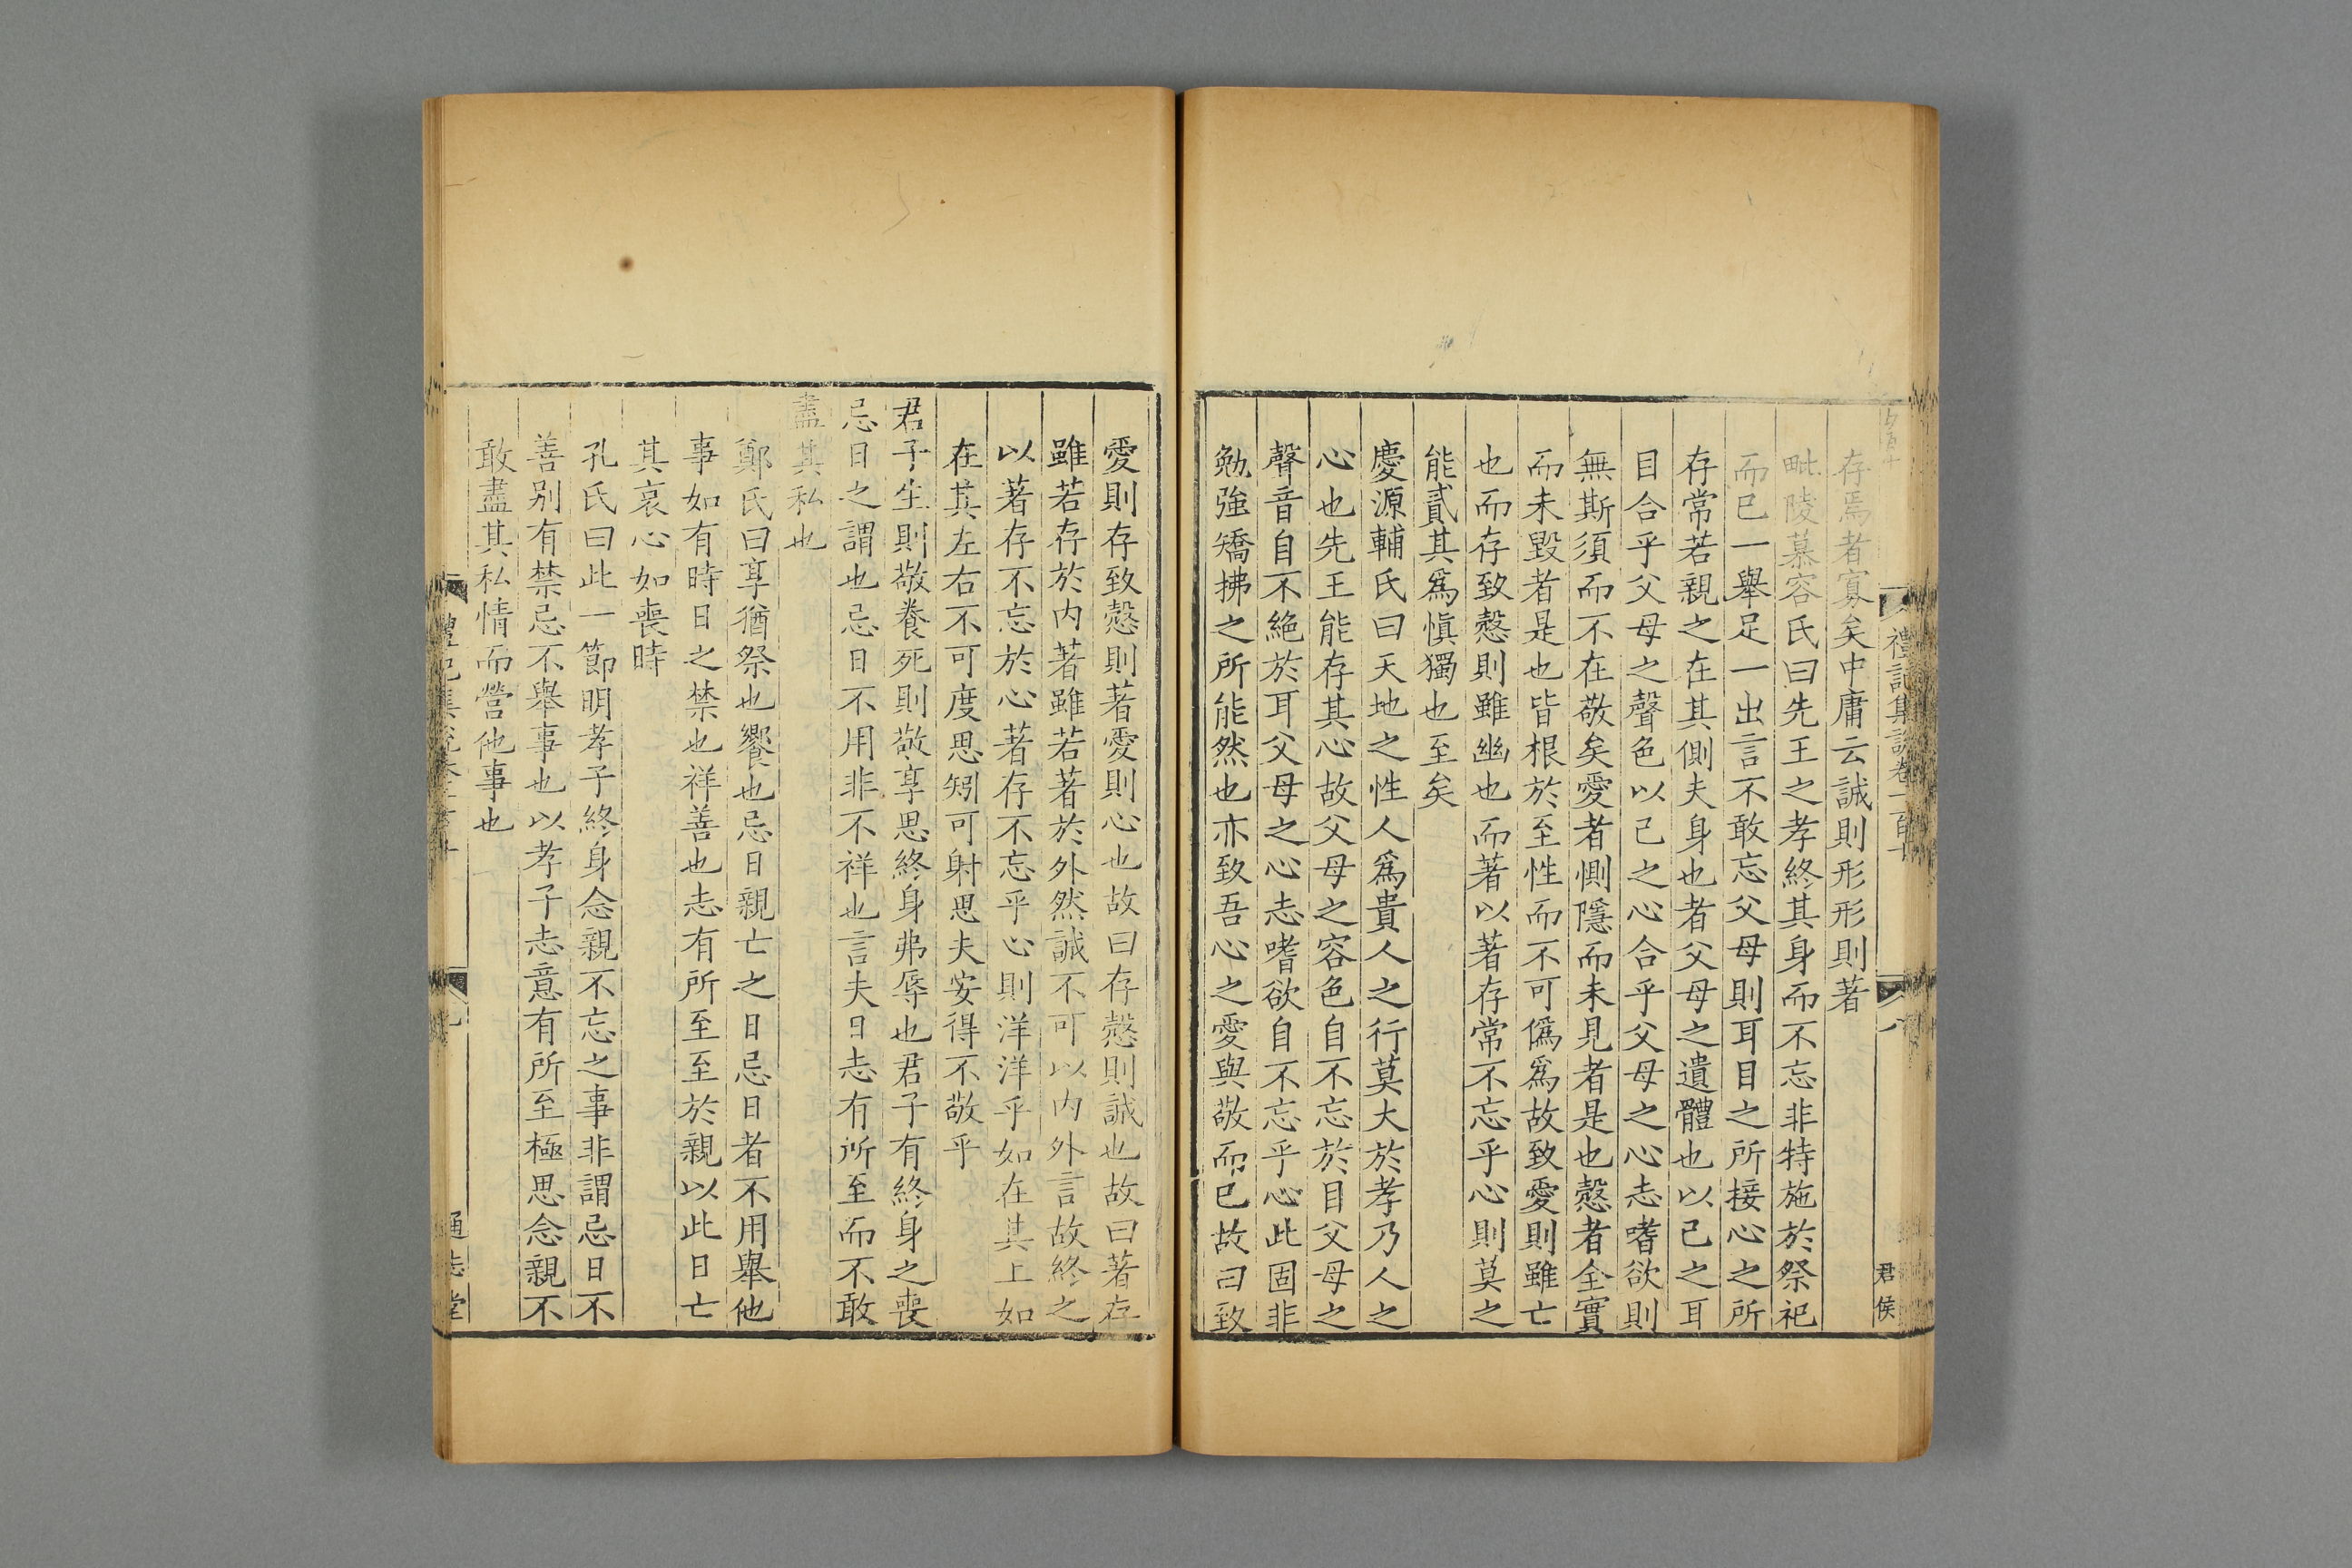 禮記集說卷一百十
八
君侯
存焉者寡矣中庸云誠則形形則著
毗陵慕容氏曰先王之孝終其身而不忘非特施於祭祀
而已一舉足一出言不敢忘父母則耳目之所接心之所
存常若親之在其側夫身也者父母之遺體也以己之耳
目合乎父母之聲色以己之心合乎父母之心志嗜欲則
無斯須而不在敬矣愛者惻隱而未見者是也慤者全實
而未毀者是也皆根於至性而不可僞爲故致愛則雖亡
也而存致慤則雖幽也而著以著存常不忘乎心則莫之
能貳其爲愼獨也至矣
慶源輔氏曰天地之性人爲貴人之行莫大於孝乃人之
心也先王能存其心故父母之容色自不忘於目父母之
聲音自不絕於耳父母之心志嗜欲自不忘乎心此固非
勉強矯拂之所能然也亦致吾心之愛與敬而已故曰致
愛則存致慤則著愛則心也故曰存慤則誠也故曰著存
雖若存於内著雖若著於外然誠不可以内外言故終之
以著存不忘於心著存不忘乎心則洋洋乎如在其上如
在其左右不可度思矧可射思夫安得不敬乎
君子生則敬養死則敬享思終身弗辱也君子有終身之喪
忌日之謂也忌日不用非不祥也言夫日志有所至而不敢
盡其私也
鄭氏曰享猶祭也饗也忌日親亡之日忌日者不用舉他
事如有時日之禁也祥善也志有所至至於親以此日亡
其哀心如喪時
孔氏曰此一節明孝子終身念親不忘之事非謂忌日不
善别有禁忌不舉事也以孝子志意有所至極思念親不
敢盡其私情而營他事也
禮記集說卷一百十
九
通志堂